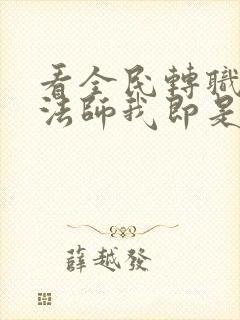 看全民轉職
法師我即是
薛越發